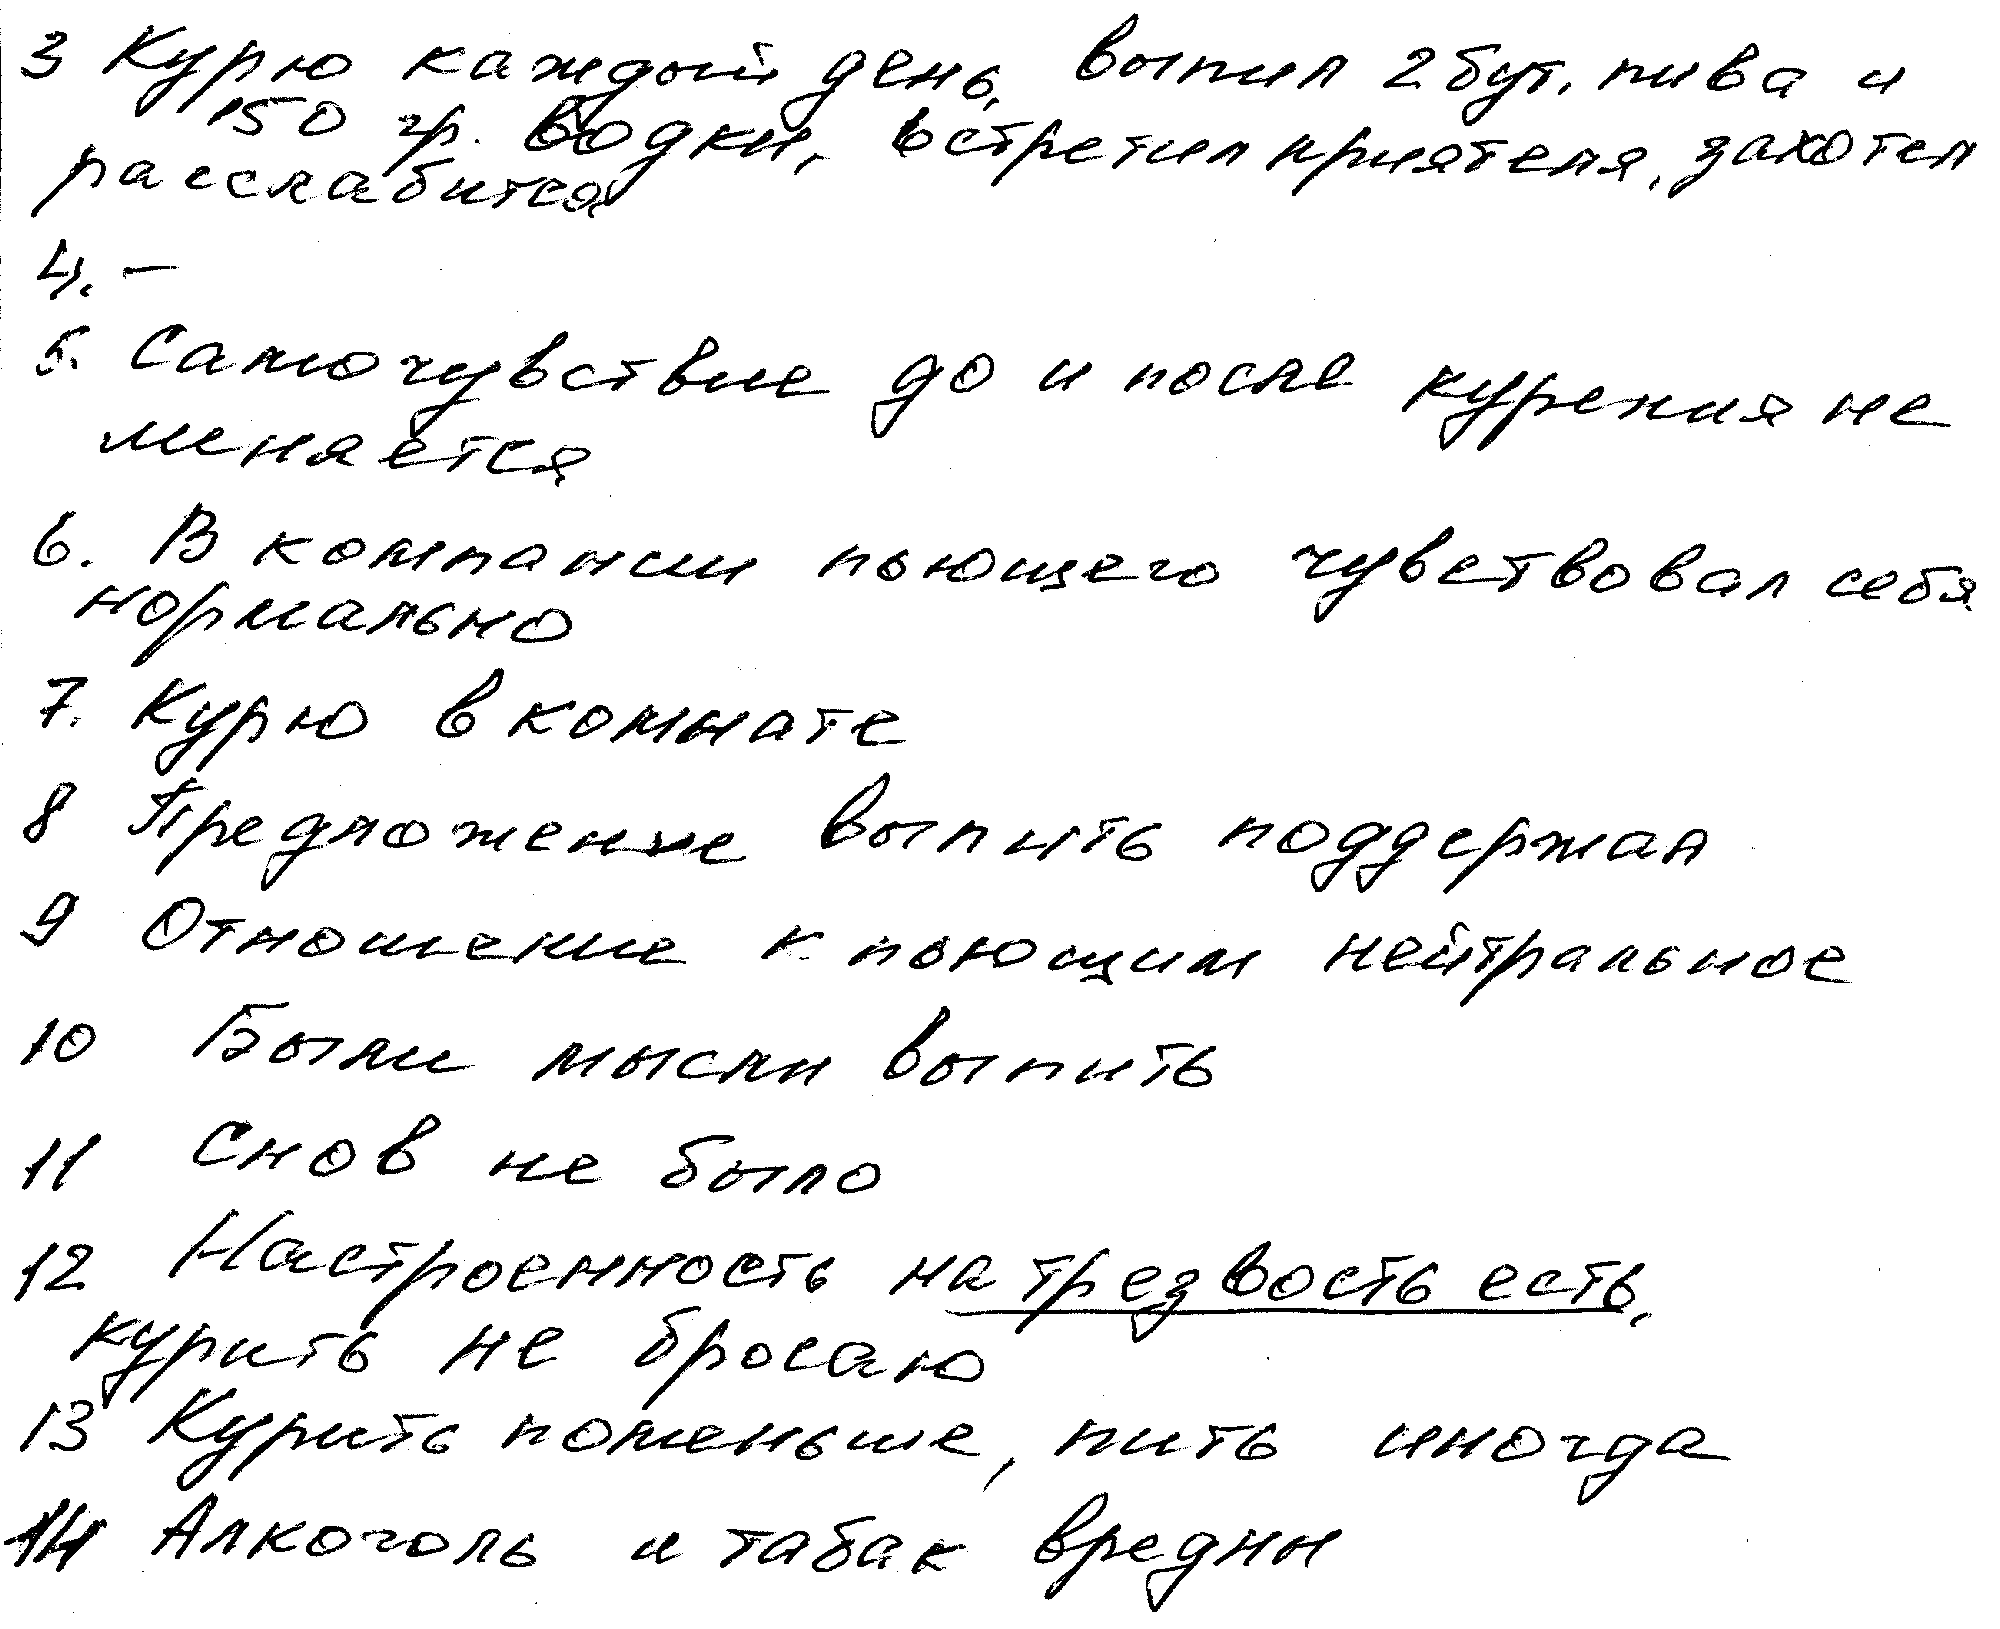 3 Курю каждый день, выпил 2 бут. пива и
150 гр. водки, встретил приятеля, захотел
расслабится
4. –
5. Самочувствие до и после курения не
меняется
6. В компании пьющего чувствовал себя
нормально
7. Курю в комнате
8 Предложение выпить поддержал
9 Отношение к пьющим нейтральное
10 Были мысли выпить
11 Снов не было
12 Настроенность на трезвость есть,
курить не бросаю
13 Курить поменьше, пить иногда
14 Алкоголь и табак вредны